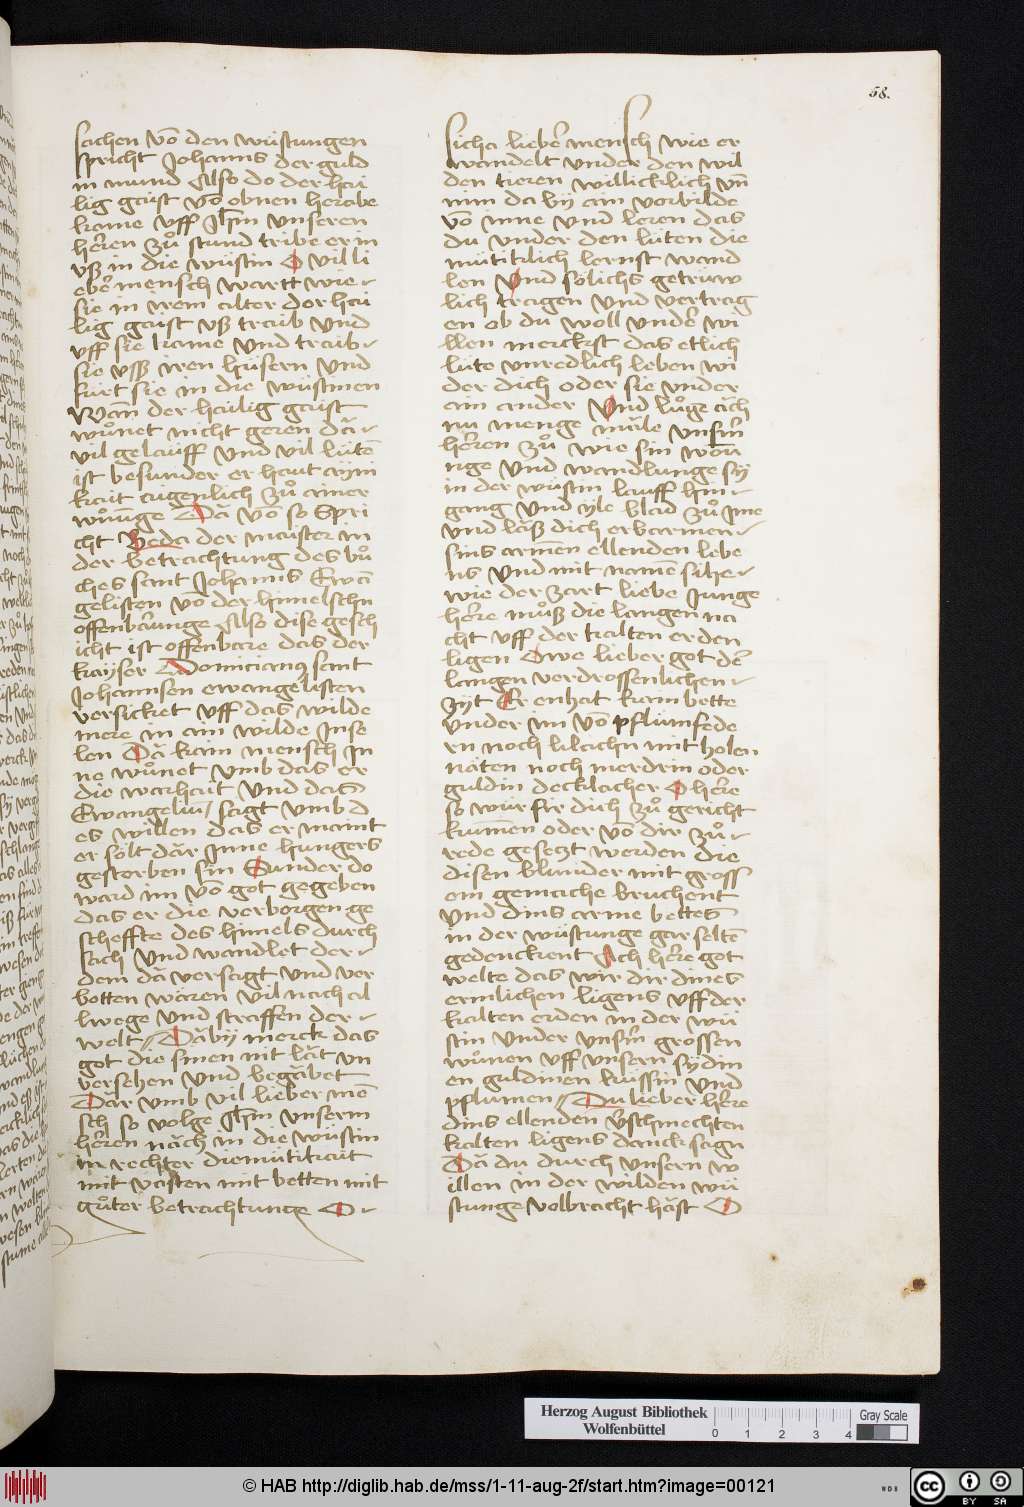 58.
sachen vō den wüstungen
spricht Johanns der guld
in mund Also do der hai
lig gaist vō obnen herabe
kame vff Jhm̄ vnseren
herren zů stund tribe er in
vß in die wüstin O vil li
eber mensch wartt wie
sie in irem alter der hai
lig gaist vß traib vnd
vff sie kame vnd traib
sie vss iren hüsern vnd
fürt sie in die wüstinen
Wañ der hailig gaist
wůnet nicht geren dā
vil gelauff vnd vil lüten̄
ist besunder er haut ayni
kait augenlich zů ainer
wůnūge Dā vō so spri
cht Beda der maister in
der betrachtung des bů
ches sant Johanns Ewā
gelisten vō der himelschn
offenbarunge Also dise gesch
icht ist offenbare das der
kayser Domicianus sant
Johannsen ewangelisten
versicket vff das wilde
mere in ain wilde Inse
len Dā kain mensch in
ne wůnet vmb das er
die warhait vnd das
Ewangeliū sagt vmb d
es willen das er maint
er sölt dār inne hungers
gestorben sin Sunder do
ward im vō got gegeben
das er die verborgen ge
scheffte des himels durch
sach vnd wandlet der
dem dā versagt vnd ver
botten waren vil nach al
lwege vnd straffen der
welt Dā by merck das
got die sinen nit lāt vn
versehen vnd begābet
Dār vmb vil lieber men̄
sch so volge Jhm̄ vnserm
herren nāch in die wüstin
in rechter diemütikait
mit vasten mit betten mit
gůter betrachtunge O
sicha lieber mensch wie er
wandelt vnder den wil
den tieren willicklich vn̄
nim da by ain vorbilde
vō inne vnd leren das
du vnder den lüten die
mütiklich lernst wand
len Vnd sölichs getrüw
lich tragen vnd vertrag
en ob du woll vnder wi
llen merckst das etlich
lüte vnredlich leben wi
der dich oder sie vnder
ain ander Vnd lůge āch
nu menge māle vnserm
herren zů wie sin won
nge vnd wandlunge sy
in der wüstin lauff hin
gang vnd yle blad zů ime
vnd lāß dich erbarmen
sins armen ellenden lebe
ns vnd mit namen sihe
wie der zart liebe Junge
herre můß die langen na
cht vff der kalten erden
ligen Owe lieber got der
langen verdrossenlichen
zyt Er enhat kain bette
vnder im vō pflumfede
rn noch lilachn mit holen
nāten noch merdrin oder
guldin decklacher O herre
so wür für dich zů gericht
kumen oder vō dir zů
rede gesetzt werden die
disen blunder mit gross
em gemache bruchent
vnd dins arme bettes
in der wüstunge gar selten̄
gedenckent Ach herre got
welte das wir dir dines
ermlichen ligens vff der
kalten erden in der wü
stin vnder vnserm grossen
wůnen vff vnsern sydin
en guldinen küssin vnd
pflumen Du lieber herre
dins ellenden verschmechten
kalten ligens danck sagn
Dā du durch vnsern w
illen in der wilden wü
stunge volbracht hāst O
Herzog August Bibliothek
Wolfenbüttel
0 1 2 3 4
Gray Scale
© HAB http://diglib.hab.de/mss/1-11-aug-2f/start.htm?image=00121
WDB
cc BY SA